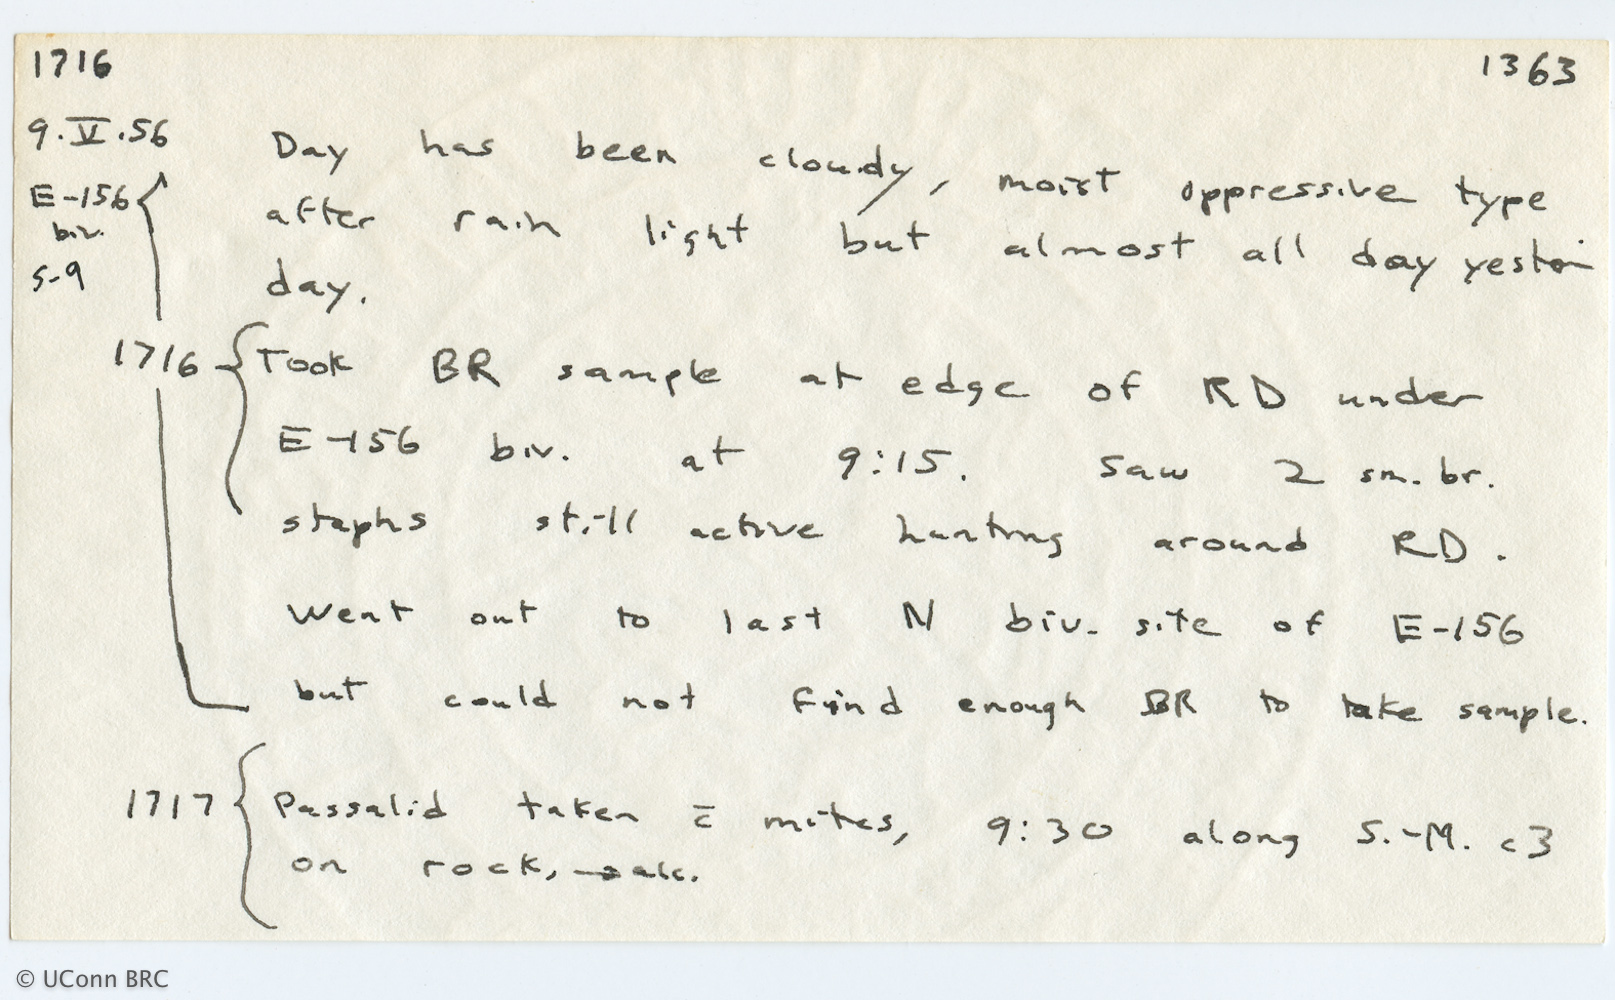 1716 1363
9.V.56 Day has been cloudy, moist oppressive type
E-156 biv. S-9 after rain light but almost all day yester
day.
1716 Took BR sample at edge of RD under
E-156 biv. at 9:15. Saw 2 sm. br.
staphs still active hunting around RD.
Went out to last N biv. site of E-156
but could not find enough BR to take sample.
1717 Passalid taken c̄ mites, 9:30 along S.-M. c3
on rock, → alc.
© UConn BRC